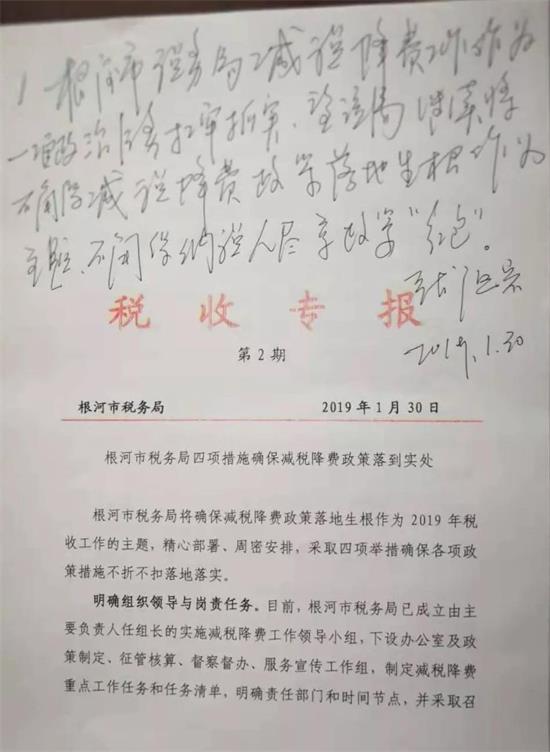 根河市税务局减税降费工作作为
一项政治任务扛牢抓实、望该局继续将
确保减税降费政策落地生根作为
主题、确保纳税人尽享政策"红包"。
2019.1.30
税收专报
第2期
根河市税务局 2019年1月30日
根河市税务局四项措施确保减税降费政策落到实处
根河市税务局将确保减税降费政策落地生根作为2019年税
收工作的主题，精心部署、周密安排，采取四项举措确保各项政
策措施不折不扣落地落实。
明确组织领导与岗责任务。目前，根河市税务局已成立由主
要负责人任组长的实施减税降费工作领导小组，下设办公室及政
策制定、征管核算、督察督办、服务宣传工作组，制定减税降费
重点工作任务和任务清单，明确责任部门和时间节点，并采取召